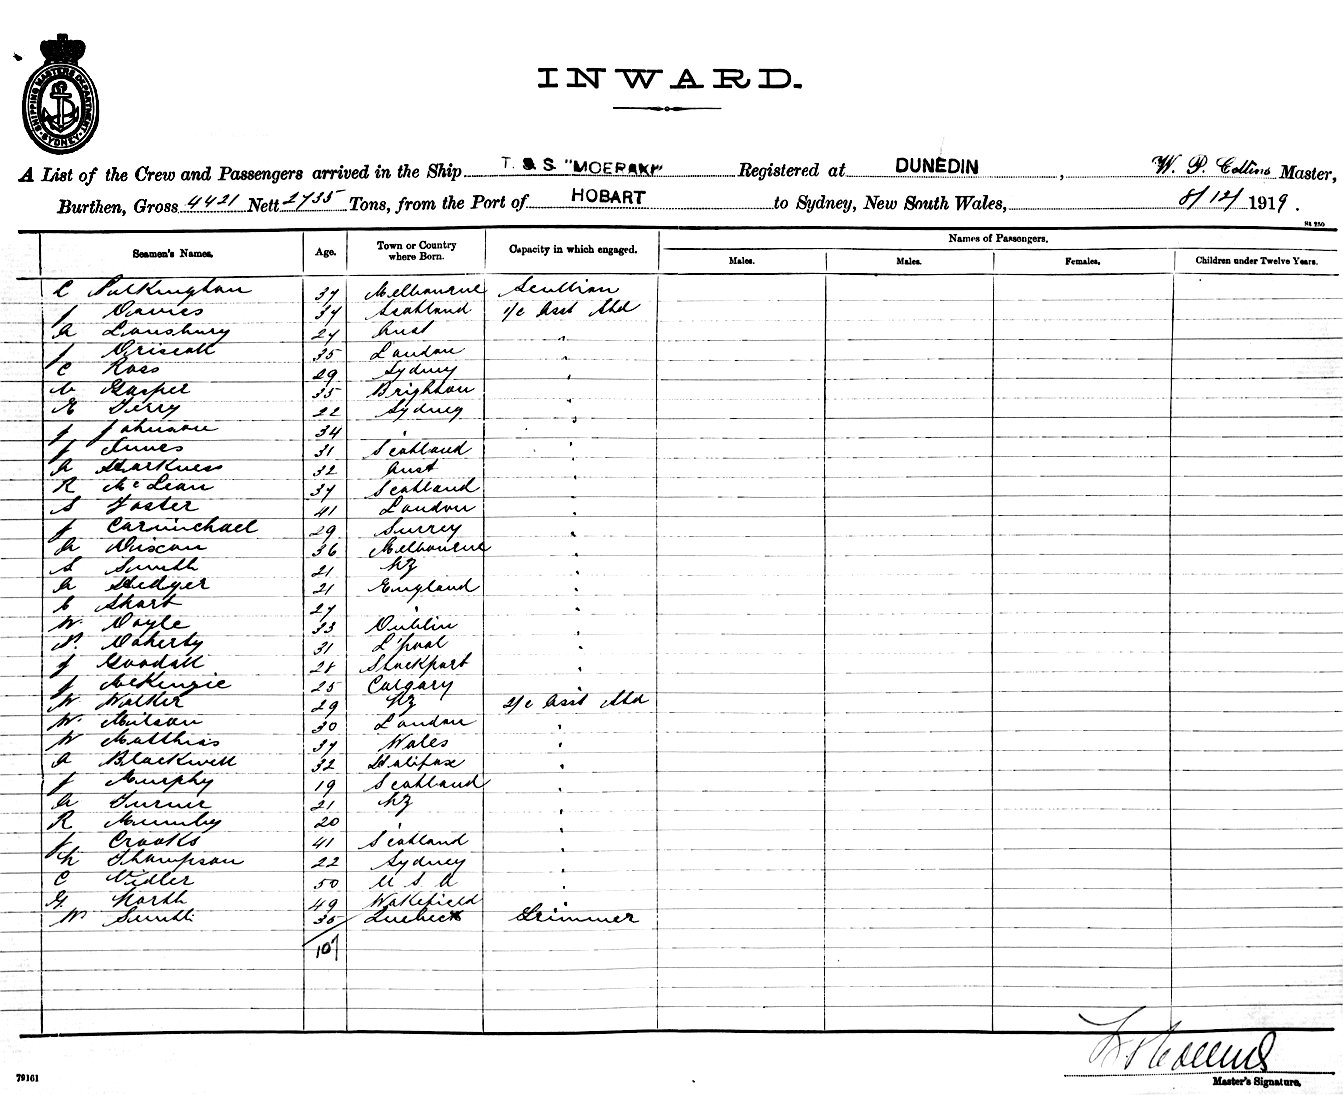 SHIPPING MASTERS DEPARTMENT SYDNEY
INWARD.
A List of the Crew and Passengers arrived in the Ship T. S. S. "MOERAKI" Registered at DUNEDIN, W. P. Collins Master,
Burthen, Gross 4421 Nett 2735 Tons, from the Port of HOBART to Sydney, New South Wales, 8/12/1919.
Seamen's Names. Age. Town or Country where Born. Capacity in which engaged. Names of Passengers.
Males. Males. Females. Children under Twelve Years.
C Pilkington 37 Melbourne Scullion
J Davies 37 Scotland 1/c Asst Std
A Lounsbury 27 Aust "
J Driscoll 35 London "
C Ross 29 Sydney "
Gasper 35 Brighton "
E Terry 22 Sydney "
J Johnson 34 " "
J Innes 31 Scotland "
A Harkness 32 Aust "
R McLean 37 Scotland "
S Foster 41 London "
J Carmichael 29 Surrey "
A Dixon 36 Melbourne "
S Smith 21 NZ "
A Hedger 21 England "
Short 27 " "
W Doyle 33 Dublin "
P. Doherty 31 L'pool "
J Goodall 28 Stockport "
J McKenzie 25 Calgary "
W Walker 29 NZ 2/c Asst Std
W. Milson 30 London "
W Matthias 37 Wales "
A Blackwell 32 Halifax "
J Murphy 19 Scotland "
A Turner 21 NZ "
R Mumby 20 " "
J Crooks 41 Scotland "
H Thompson 22 Sydney "
C Vidler 50 U S A "
G. North 49 Wakefield "
W Smith 35 Quebec Trimmer
107
W P Collins
Master's Signature.
79161